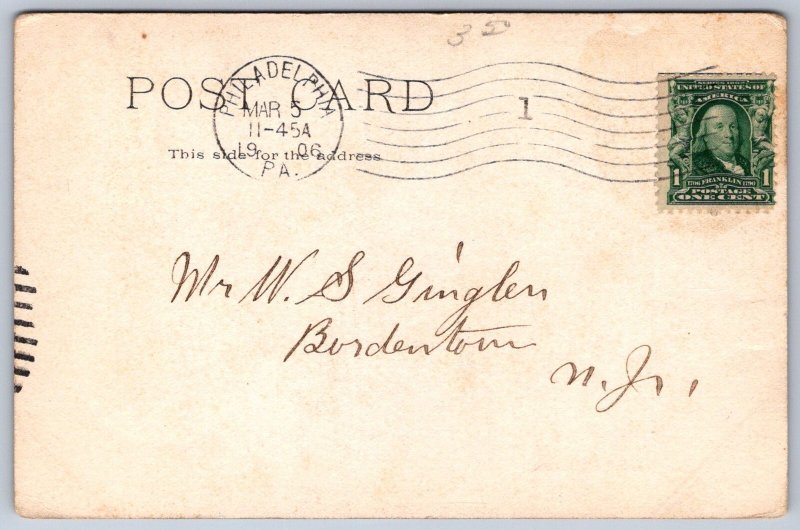 35
POST CARD
PHILADELPHIA
MAR 5
11-45A
19 06
PA.
1
This side for the address
SERIES 1902
UNITED STATES OF
AMERICA
1706 FRANKLIN 1790
1 POSTAGE 1
ONE CENT
Mr W. S Ginglen
Bordentown
N. J.,